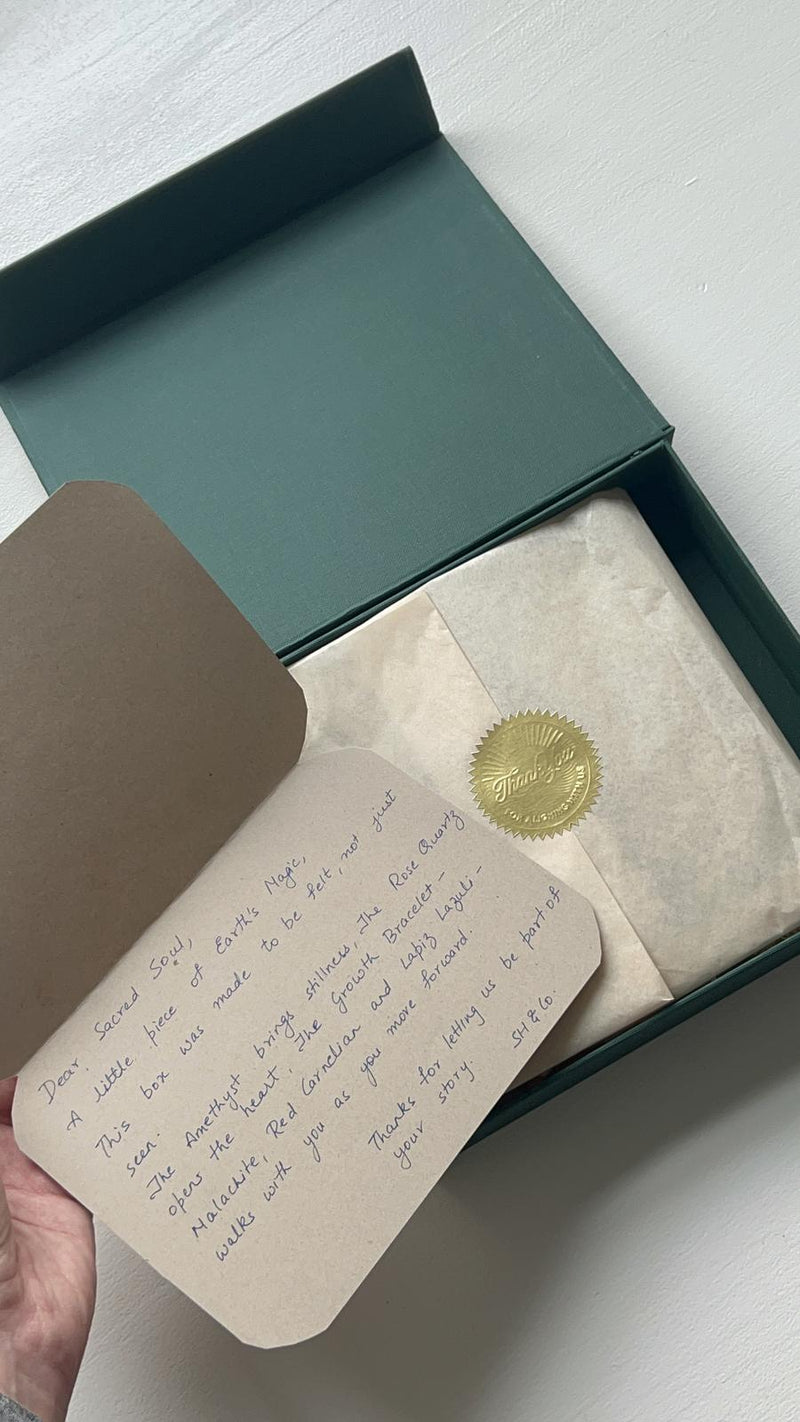 Dear Sacred Soul,
A little piece of Earth's Magic,
This box was made to be felt, not just
seen.
The Amethyst brings stillness, The Rose Quartz
opens the heart, The Growth Bracelet -
Malachite, Red Carnelian and Lapiz Lazuli -
walks with you as you move forward.
Thanks for letting us be part of
your story.
SH & Co.
Thank you
FOR ALIGNING WITH US